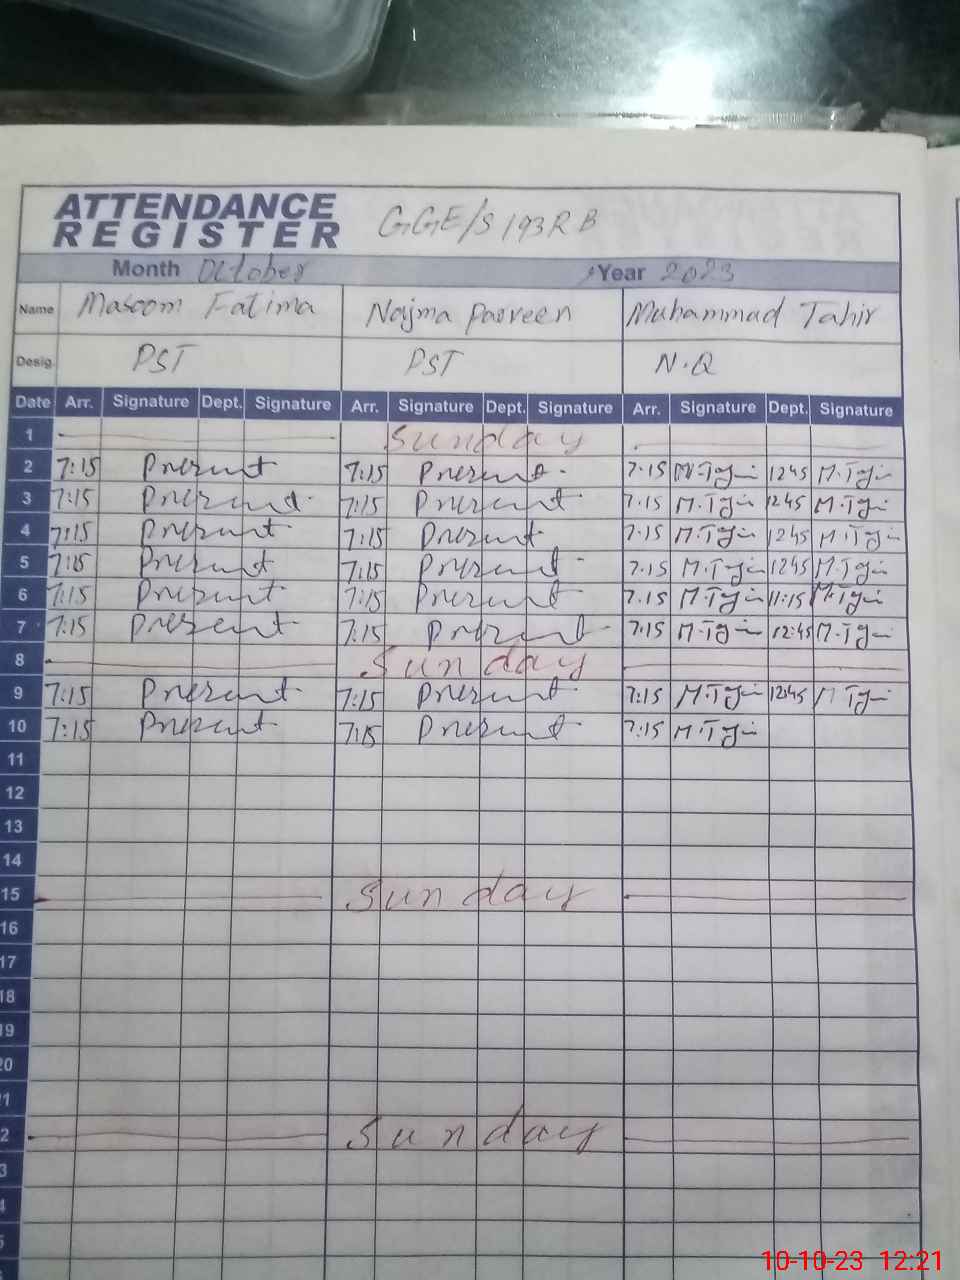 ATTENDANCE
REGISTER GGE/S 193RB
Month October Year 2023
Name Masoom Fatima Najma Parveen Muhammad Tahir
Desig. PST PST N.Q
Date Arr. Signature Dept. Signature Arr. Signature Dept. Signature Arr. Signature Dept. Signature
1 Sunday
2 7:15 Present 7:15 Present 7.15 1245
3 7:15 Present 7:15 Present 7.15 1245
4 7:15 Present 7:15 Present 7.15 1245
5 7:15 Present 7:15 Present 7.15 1245
6 7:15 Present 7:15 Present 7.15 11:15
7 7:15 Present 7:15 Present 7:15 12:45
8 Sunday
9 7:15 Present 7:15 Present 7:15 12:45
10 7:15 Present 7:15 Present 7:15
11
12
13
14
15 Sunday
16
17
18
19
20
1
2 Sunday
3
4
5
10-10-23 12:21